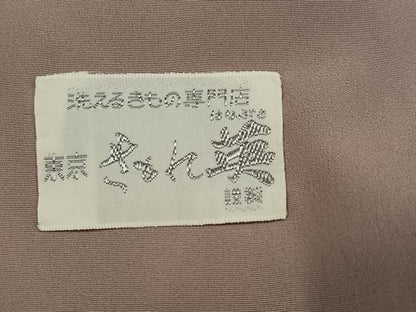 洗えるきもの専門店
東京 きもん英
謹製